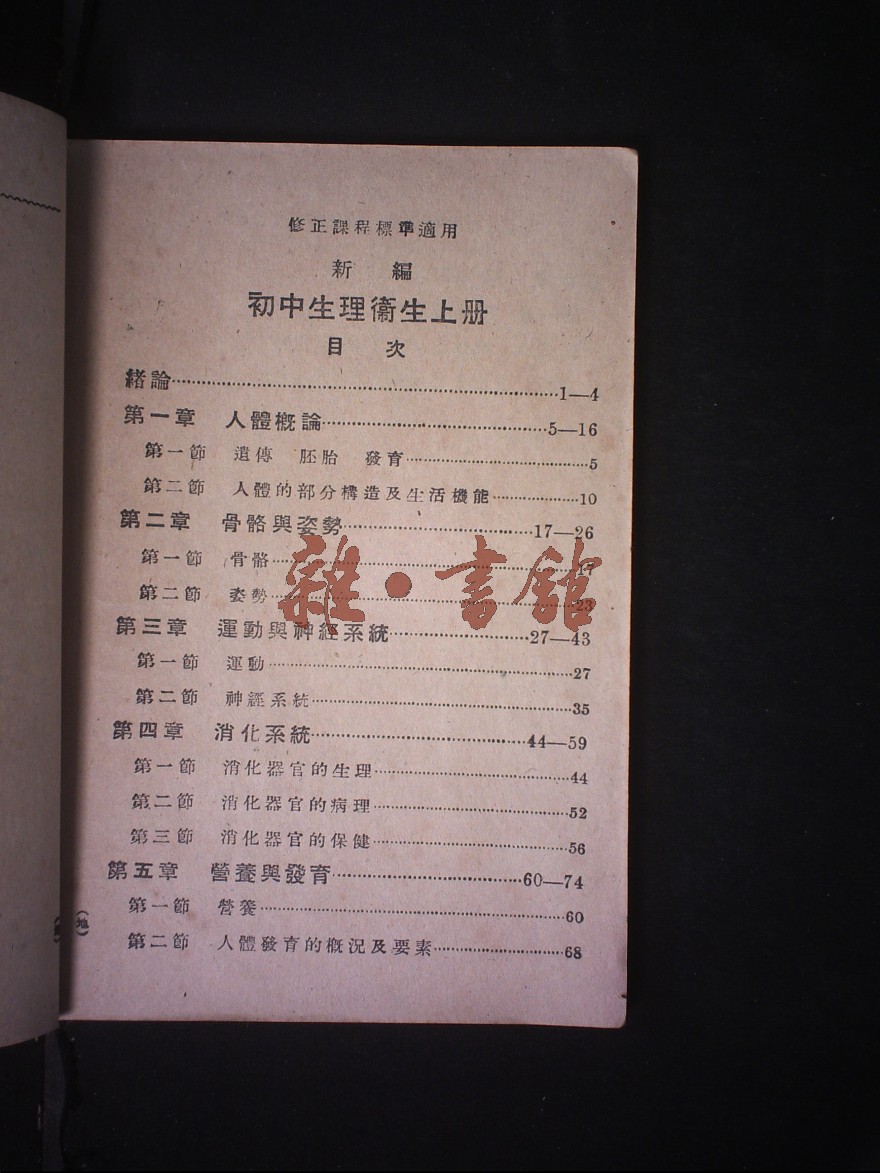 修正課程標準適用
新編
初中生理衞生上册
目次
緒論……1—4
第一章 人體概論……5—16
第一節 遺傳 胚胎 發育……5
第二節 人體的部分構造及生活機能……10
第二章 骨骼與姿勢……17—26
第一節 骨骼……17
第二節 姿勢……23
第三章 運動與神經系統……27—43
第一節 運動……27
第二節 神經系統……35
第四章 消化系統……44—59
第一節 消化器官的生理……44
第二節 消化器官的病理……52
第三節 消化器官的保健……56
第五章 營養與發育……60—74
第一節 營養……60
第二節 人體發育的概況及要素……68
雜·書館
(地)